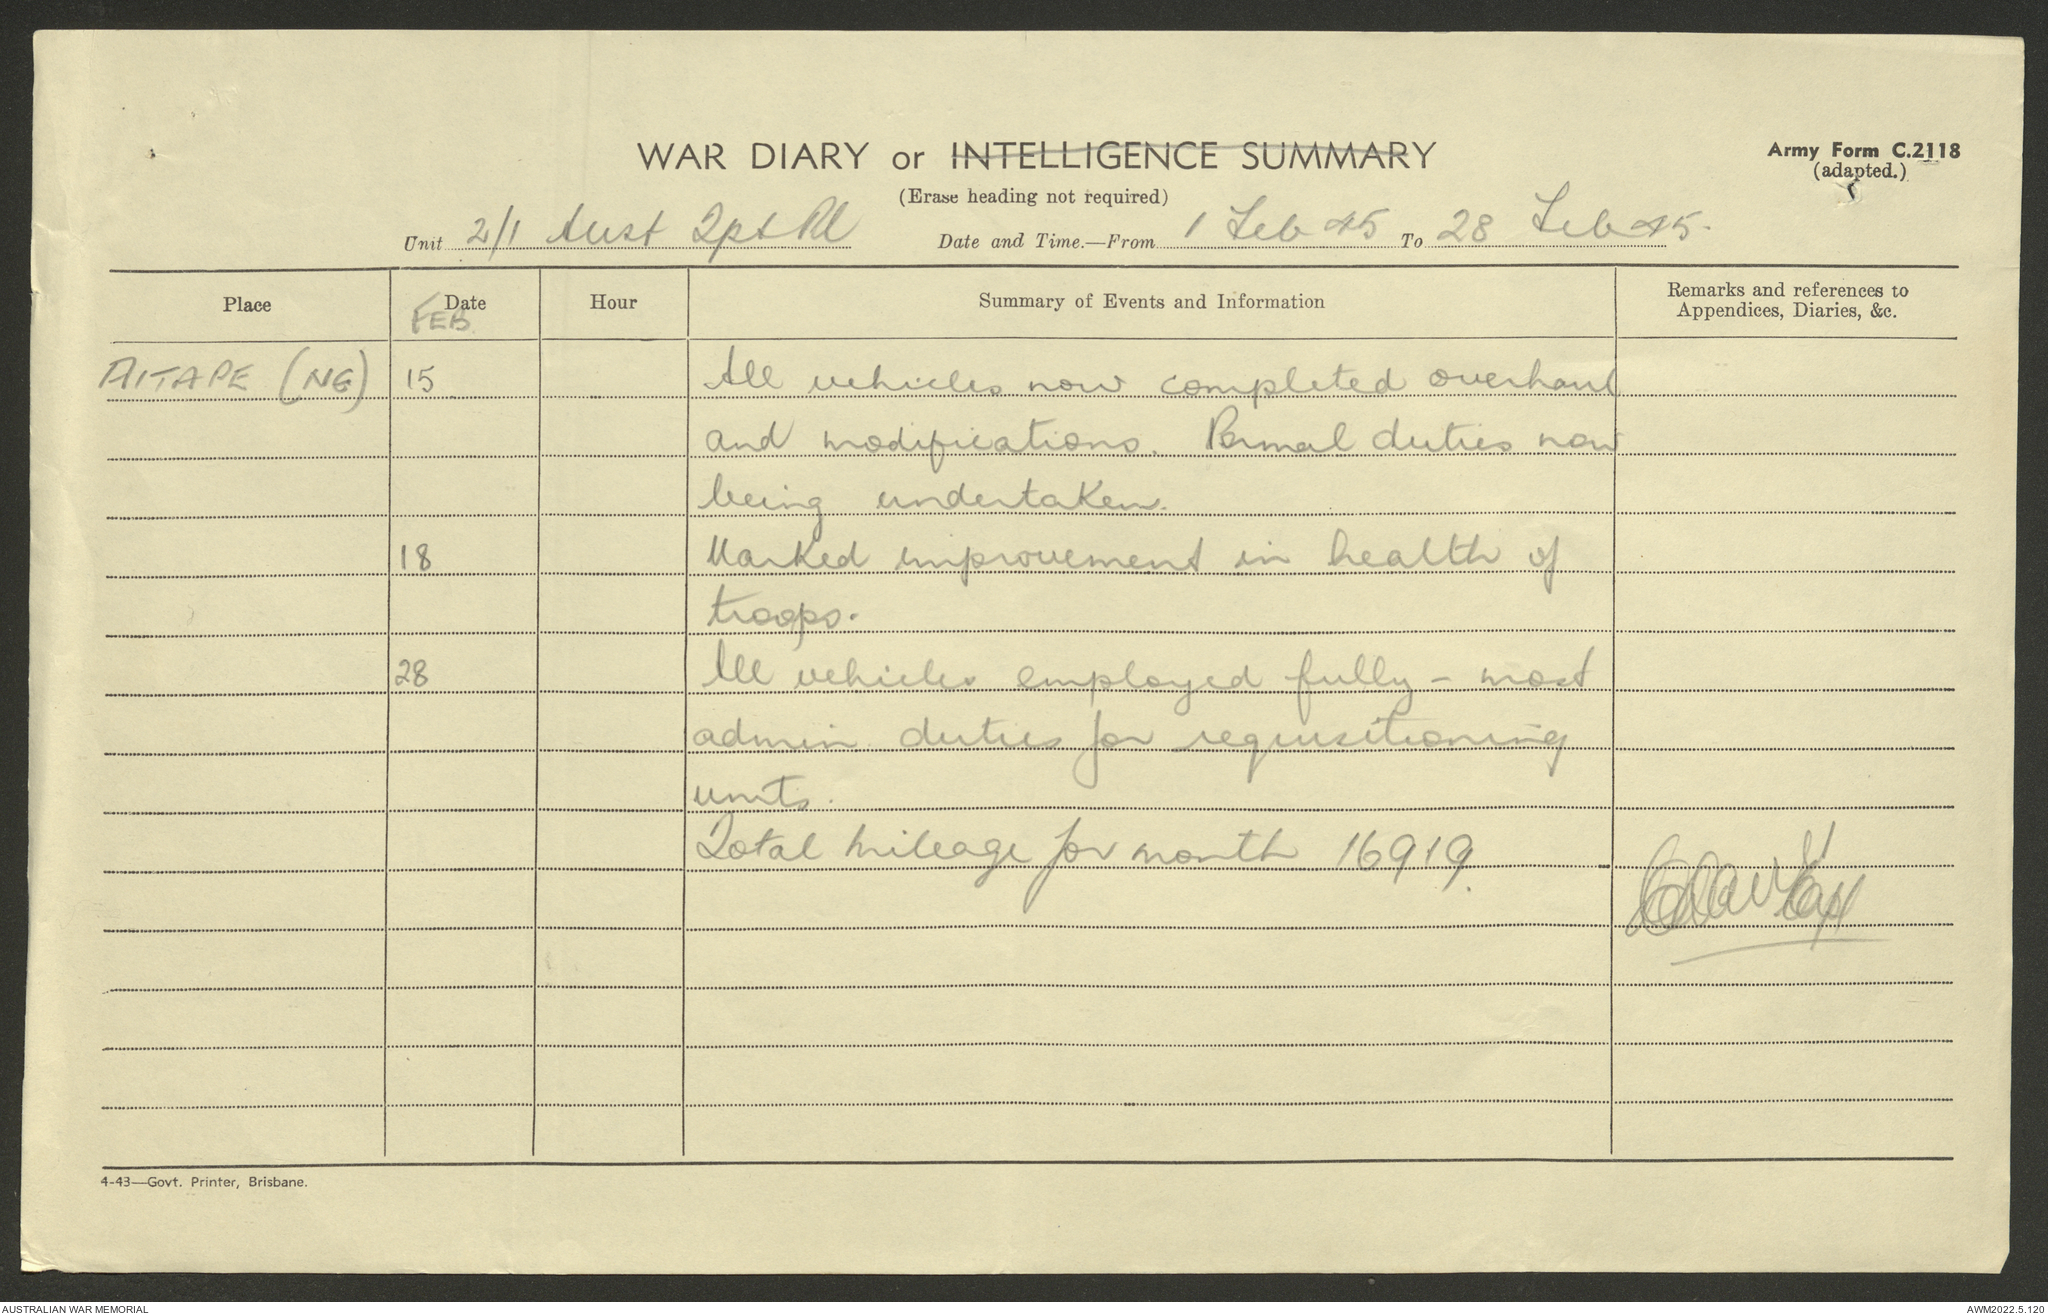 WAR DIARY or INTELLIGENCE SUMMARY
Army Form C.2118
(adapted.)
(Erase heading not required)
Unit 2/1 Aust Tpt Pl Date and Time.—From 1 Feb 45 To 28 Feb 45.
Place Date Hour Summary of Events and Information Remarks and references to
Appendices, Diaries, &c.
FEB
AITAPE (NG) 15 All vehicles now completed overhaul
and modifications. Normal duties now
being undertaken.
18 Marked improvement in health of
troops.
28 All vehicles employed fully - most
admin. duties for requisitioning
units.
Total mileage for month 16919.
4-43—Govt. Printer, Brisbane.
AUSTRALIAN WAR MEMORIAL
AWM2022.5.120